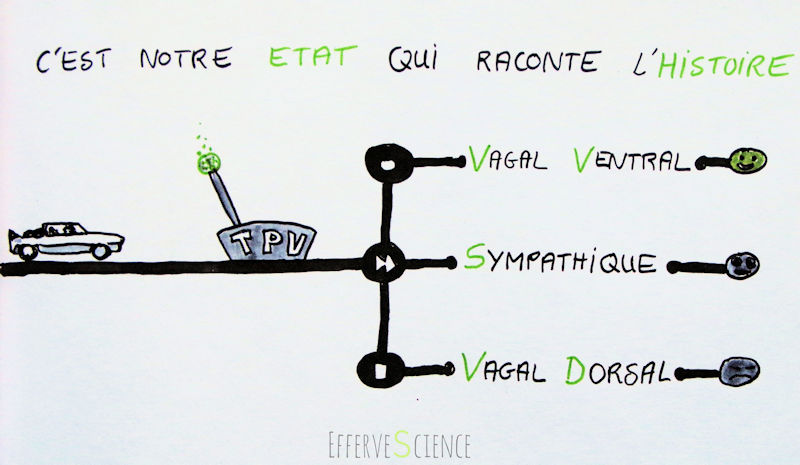 C'EST NOTRE ETAT QUI RACONTE L'HISTOIRE
VAGAL VENTRAL
TPV
SYMPATHIQUE
VAGAL DORSAL
EFFERVESCIENCE